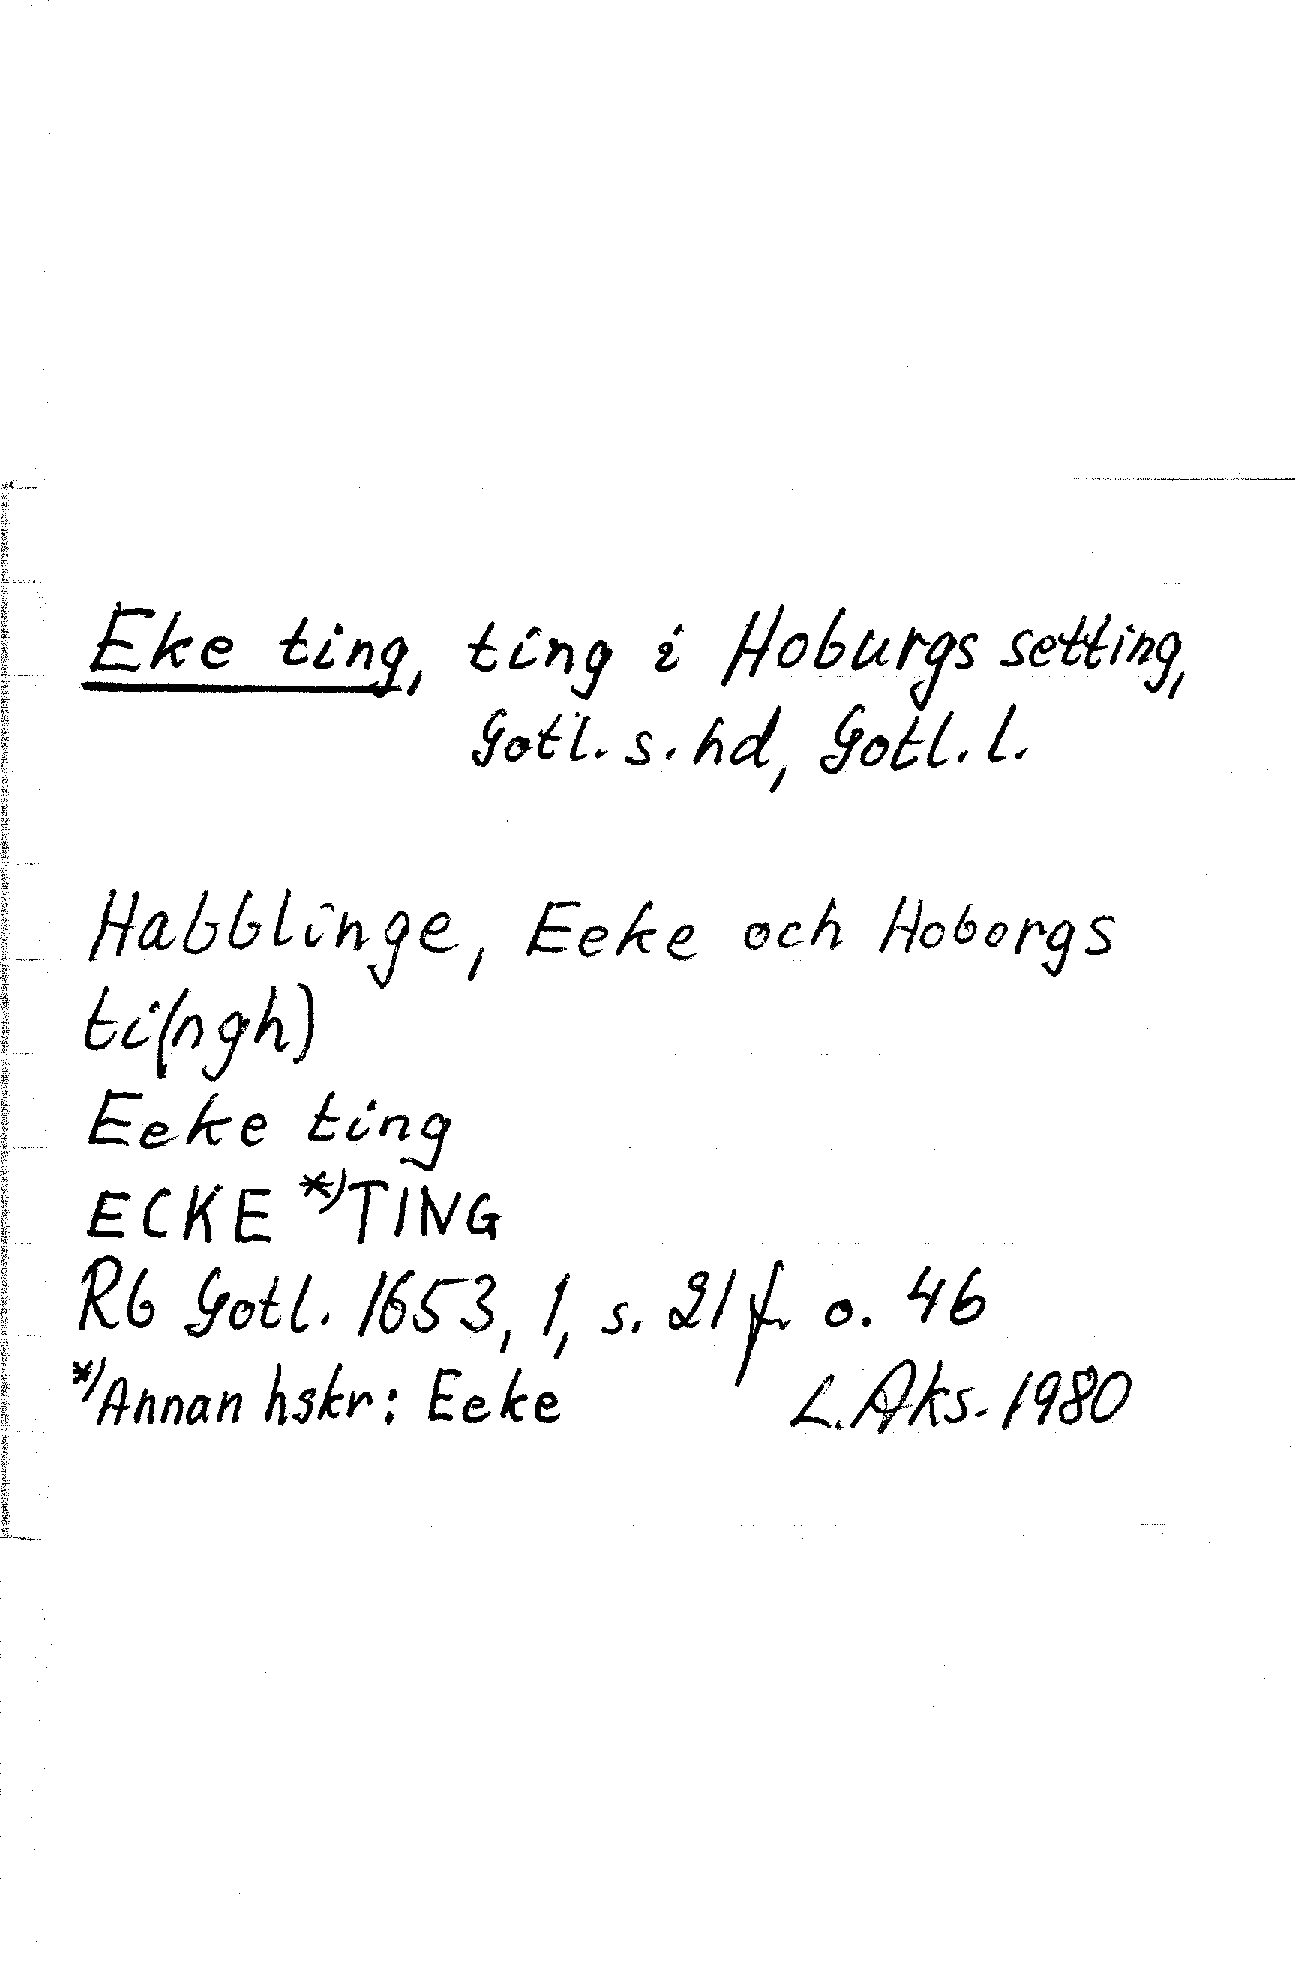 Eke ting, ting i Hoburgs setting,
Gotl. s. hd, Gotl. l.
Habblinge, Eeke och Hoborgs
ti(ngh)
Eeke ting
ECKE *) TING
Rb Gotl. 1653, 1, s. 21 f. o. 46
*) Annan hskr: Eeke L. Aks. 1980